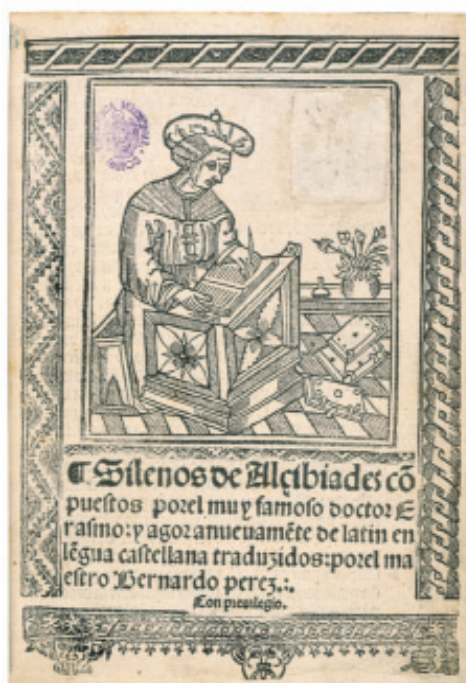 ¶ Silenos de Alcibiades cõ
puestos porel muy famoso doctor E
rasmo: y agora nueuamẽte de latin en
lẽgua castellana traduzidos: porel ma
estro Bernardo perez.:.
Con preuilegio.